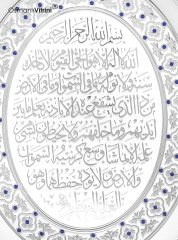 OsmanlıVitrini
بسم الله الرحمن الرحيم
الله لا اله الا هو الحي القيوم لا تأخذه
سنة ولا نوم له ما في السموات وما في الارض
من ذا الذي يشفع عنده الا باذنه يعلم ما بين
ايديهم وما خلفهم ولا يحيطون بشيء
من علمه الا بما شاء وسع كرسيه السموات
والارض ولا يؤده حفظهما وهو
العلي العظيم